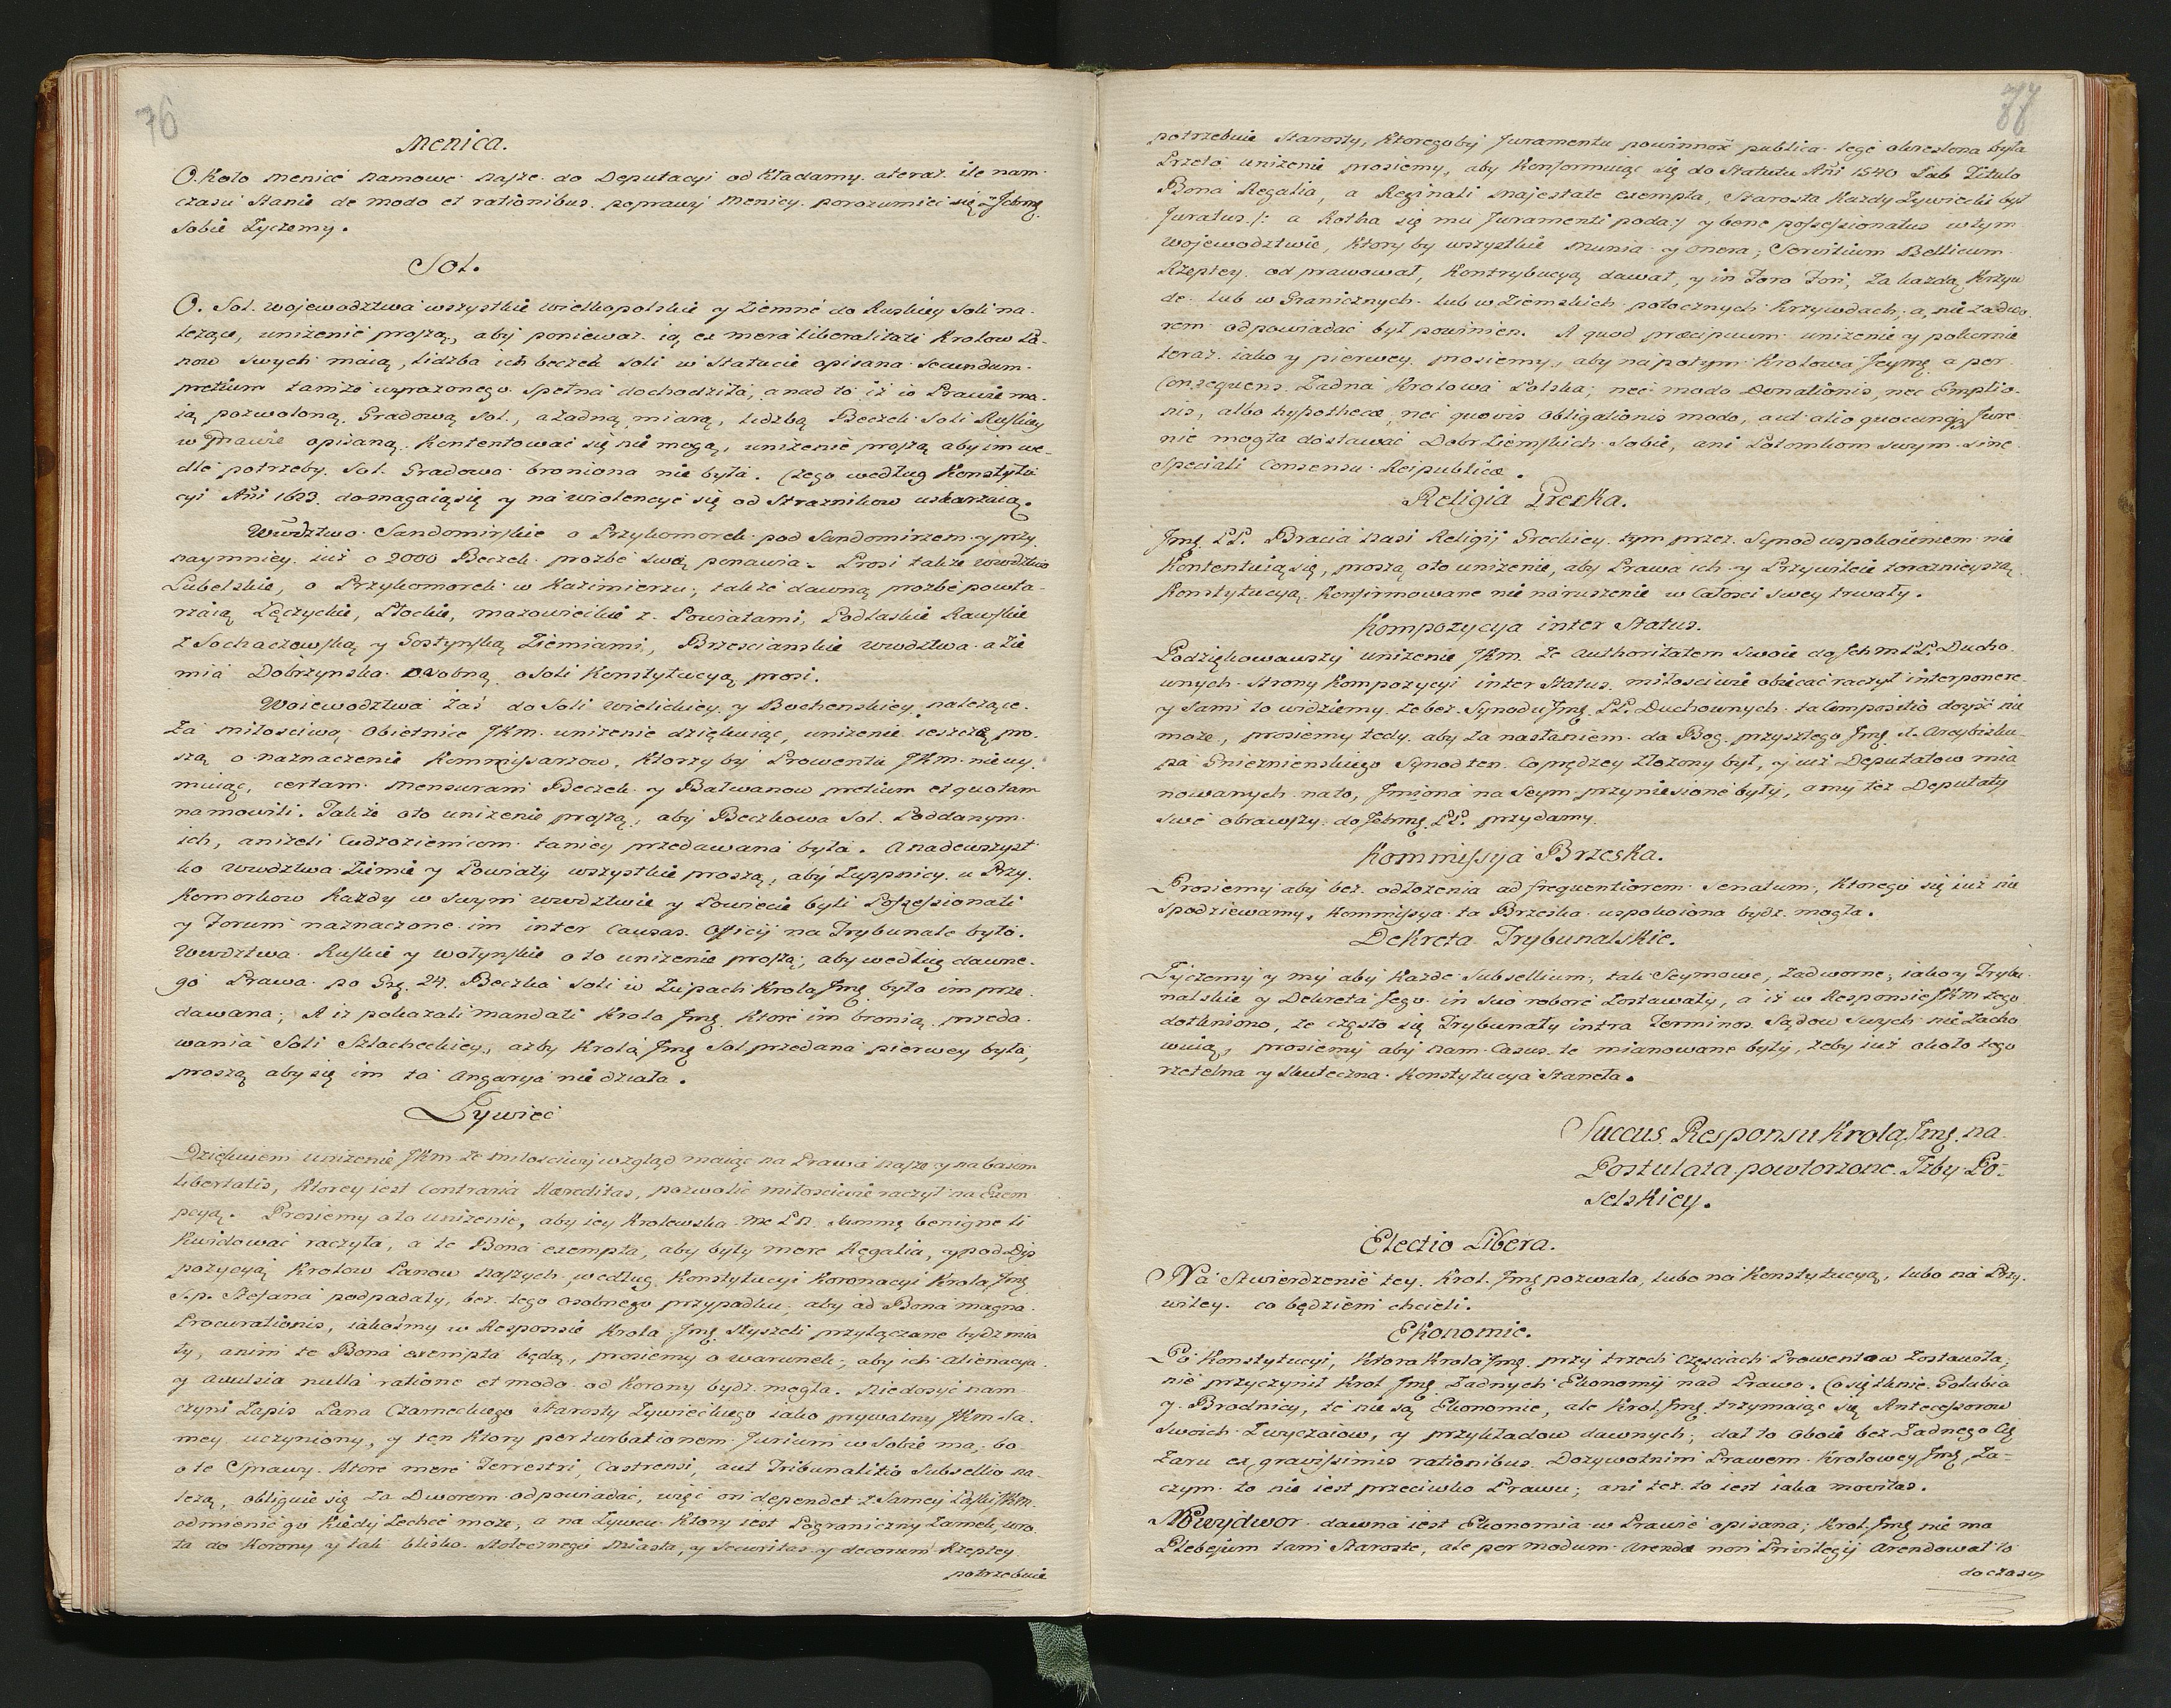 76
Menica.
O. Koło menicé namowe nasze do Deputacyi odkładamy. ateraz ile nam
czasu stanie de modo et rationibus poprawy Menicy. porozumieć się z Jchmę
sobie życzemy.
Sol.
O. Sol. wojewodztwa wszystkie wielkopolskie y Ziemné do Ruskiey Soli na-
leżące, uniżenié proszą, aby ponieważ ią ex mera liberalitaté Krolow Pa-
now swych maią, lidzba ich beczek soli w Statucie opisana secundum
pretium tamże wyrażonego spełna dochodziła, anad to iż w Prawie ma-
ią pozwoloną Gradową sol, a żadną miarą, lidzbą Beczek Soli Ruskiey
w Prawie opisaną Kontentować się nie mogą, uniżenié proszą aby im we-
dle potrzeby Sol Gradowa broniona nie była. Czego według Konstytu
cyi Añi 1623 domagaią się y na wiolencyé się od Strażnikow uskarżaią.
Wwdztwo Sandomirskie o Przykomorek pod Sandomirzem y przy
naymniey iuż o 2000 Beczek prozbé swoię ponawia. Prosi także wwdztwo
Lubelskie, o Przykomorek w Kazimierzu, także dawną prozbé powta-
rzaią Łęczyckie, Płockie, mazowieckie z Powiatami, Podlaskie Rawskie
z Sochaczewską y Gostynską Ziemiami, Brzescianskie wwdztwa a Zie
mia Dobrzynska osobną o Soli Konstytucyą prosi.
Woiewodztwa zaś do Soli Wielickiey y Bochenskiey należące
za miłosciwą obietnicę JKm. uniżenie dziękuiąc, uniżenie ieszcze pro-
szą o naznaczenie Kommissarzow, Ktorzy by Prowentu JKm nieuy
muiąc, certam mensuram Beczek y Bałwanow pretium et quotam
namowili. Także oto uniżenie proszą, aby Beczkowa Sol Poddanym
ich, aniżeli Cudzoziemcom taniey przedawana była. A nadewszyst
ko wwdztwa Ziemie y Powiaty wszystkie proszą, aby Żuppnicy u Przy
Komorkow Każdy w swym wwdztwie y Powiecie byli Possessionati
y Forum naznaczone im inter Causas Officij na Trybunale było.
Wwdztwa Ruskie y Wołynskie o to uniżenie proszą, aby według dawne-
go Prawa po Grz. 24 Beczka soli w Żupach Krola Jmę była im prze
dawana; A iż pokazali mandaté Krola Jmę Ktoré im bronią przeda
wania Soli Szlacheckiey, azby Krola Jmę Sol przedana pierwey była,
proszą aby się im ta Angarya nie działa.
Żywiec
Dziękuiem uniżenie JKm że miłosciwy wzgląd maiąc na Prawa nasze y na basim
libertatis, Ktorey iest contraria Haereditas, pozwolić miłosciwie raczył na Exem
pcyą. Prosiemy oto uniżenie, aby iey Krolewska Mc Pn. Summę benigne li
kwidować raczyła, a te Bona exempta, aby były mere Regalia, y pod Dys
pozycyą Krolow Panow naszych według Konstytucyi Koronacyi Krola Jmę
S.p. Stefana podpadały, bez tego osobnego przypadku, aby ad Bona magna
Procurationis, iakośmy w Responsie Krola Jmę słyszeli przyłączane bydź mia
ły, anim te Bona exempta będą, prosiemy o warunek, aby ich alienacya
y avulsia nulla ratione et modo od Korony bydź mogła. Niedosyć nam
czyni Zapis Pana Czarneckiego Starosty Żywieckiego iako prywatny JKm Sa-
mey uczyniony, y ten Ktory perturbationem Jurium w sobie ma, bo
o te Sprawy Ktore mere Terrestri, Castrensi, aut Tribunalitio Subsellio na-
leżą, obliguie się za Dworem odpowiadać, więc on dependet z Samey Łaski JKm
odmienić go kiedy zechce może, a na Żywcu Ktory iest Pograniczny Zamek, wro
ta do Korony y tak blisko Stołecznego Miasta, y Securitas y decorum Rzeptey
potrzebuie
77
potrzebuie Starosty, Ktoregoby Juramentu powinność publica lege okreslona była
Przeto uniżenie prosiemy, aby Konformuiąc się do Statutu Añi 1540 Sub Titulo
Bona Regalia, a Reginali Majestate exempta, Starosta Każdy Żywiecki był
Juratus /: a Rotha się mu Juramenti poda :/ y bene possessionatus w tym
Wojewodztwie, Ktory by wszystkie munia y onera, Servitium Bellicum
Rzeptey odprawował, Kontrybucyą dawał, y in Foro Fori, za każdą Krzyw
dę lub w Granicznych lub w Ziemskich potocznych Krzywdach, a, nie zadwo-
rem odpowiadać był powinien. A quod praecipuum uniżenie y pokornie
teraz iako y pierwey prosiemy, aby napotym Krolowa Jeymę a per
Consequens Żadna Krolowa Polska, neć modo Donationis, nec Emptio-
nis, albo hypothecae, neć quovis obligationis modo, aut alio quocunq Jure
nie mogła dostawać Dobr Ziemskich sobie, ani Potomkom swym sine
speciali Consensu Reipublicae.
Religia Grecka.
Jmę PP. Bracia nasi Religij Greckiey tym przez Synod uspokoieniem nie
Kontentuią się, proszą oto uniżenie, aby Prawa ich y Przywileie teraznieyszą
Konstytucyą Konfirmowane nie naruszenie w całosci swey trwały.
Kompozycya inter Status.
Podziękowawszy uniżenie JKm. że authoritatem swoie do Jch m PP. Ducho
wnych strony Kompozycyi inter Status miłosciwie obiecać raczył interponere
y sami to widziemy że bez Synodu Jmę PP. Duchownych ta Compositio doyść nie
może, prosiemy tedy aby za nastaniem da Bog przyszłego Jmę X. Arcybisku-
pa Gnieznienskiego Synod ten Coprędzey złożony był, y iuż Deputatow mia
nowanych nato, Jmiona na Seym przyniesione były, a my też Deputaty
swé obrawszy do Jchmę PP. przydamy.
Kommissya Brzeska.
Prosiemy aby bez odłożenia ad frequentiorem Senatum, Ktorego się iuż nie
spodziewamy, Kommissya ta Brzeska uspokoiona bydź mogła.
Dekreta Trybunalskie.
Życzemy y my aby Każde Subsellium, tak Seymowe, Zadworne, iako y Trybu-
nalskie y Dekreta Jego in suo robore zostawały, a iż w Responsie JKm tego
dotkniono, że często się Trybunały intra Terminos Sądow swych nie zacho
wuią, prosiemy aby nam Casus te mianowane były, żeby iuż około tego
rzetelna y skuteczna Konstytucya stanęła.
Succus Responsu Krola Jmę na
Postulata powtorzone Izby Po-
selskiey.
Electio Libera.
Na Stwierdzenié tey Krol Jmę pozwala, lubo na Konstytucyą, lubo na Przy-
wiley co będziem chcieli.
Ekonomie.
Po Konstytucyi, Ktora Krola Jmę przy trzech Częsciach Prowentow zostawiła,
nié przyczynił Krol Jmę Żadnych Ekonomij nad Prawo. Co się tknie Golubia
y Brodnicy, te nie są Ekonomie, ale Krol Jmę trzymaiąc się Antecessorow
Swoich Zwyczaiow, y przykładow dawnych, dał to oboie bez Żadnego Cię
żaru ex gravissimis rationibus Dożywotnim Prawem Krolowey Jmę, Za-
czym to nie iest przeciwko Prawu, ani też to iest iaka novitas.
Nowydwor dawna iest Ekonomia w Prawie opisana, Krol Jmę nie ma
Plebejum tam Staroste, ale per modum Arendae non Privilegij Arendował to
doczasu